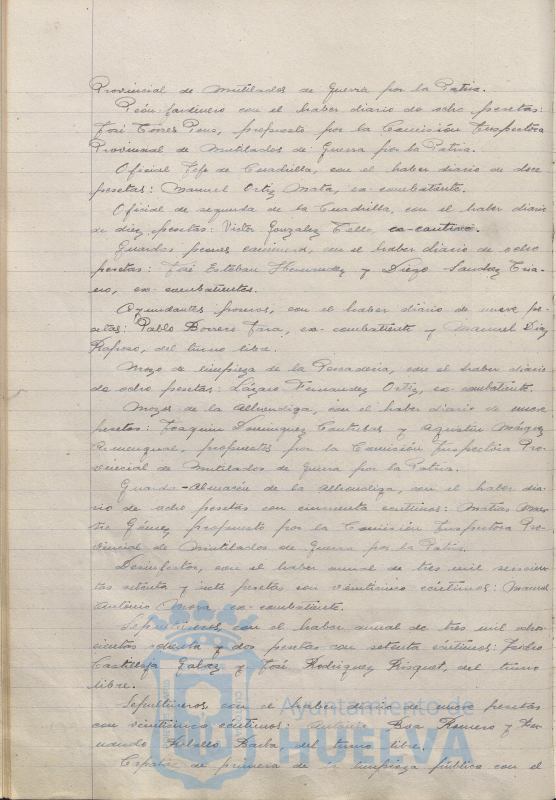 Provincial de Mutilados de Guerra por la Patria.
Peón jardinero con el haber diario de ocho pesetas:
José Torres Pons, propuesto por la Comisión Inspectora
Provincial de Mutilados de Guerra por la Patria.
Oficial Jefe de Cuadrilla, con el haber diario de doce
pesetas: Manuel Ortiz Mata, ex-combatiente.
Oficial de segunda de la Cuadrilla, con el haber diario
de diez pesetas: Victor Gonzalez Tello, ex-cautivo.
Guardas peones, con el haber diario de ocho
pesetas: José Esteban Hernandez y Diego Sanchez
ex-combatientes.
Ayudantes poceros, con el haber diario de nueve pe-
setas: Pablo Borrero Jara, ex-combatiente y Manuel Diaz
Raposo, del turno libre.
Mozo de limpieza de la Pescaderia, con el haber diario
de ocho pesetas: Lázaro Fernandez Ortiz, ex-combatiente.
Mozos de la Alhondiga, con el haber diario de nueve
pesetas: Joaquin Dominguez y Agustin Márquez
Armengual, propuestos por la Comisión Inspectora Pro-
vincial de Mutilados de Guerra por la Patria.
Guarda-Almacén de la Alhondiga, con el haber dia-
rio de ocho pesetas con cincuenta centimos: Matias
Gómez, propuesto por la Comisión Inspectora Pro-
vincial de Mutilados de Guerra por la Patria.
Desinfector, con el haber anual de tres mil seiscien-
tas setenta y siete pesetas con veinticinco céntimos: Manuel
Antonio Mora, ex-combatiente.
Sepultureros, con el haber anual de tres mil ocho-
cientas ochenta y dos pesetas con setenta céntimos: Pedro
Castilleja Galvez y José Rodriguez Risquet, del turno
libre.
Sepultureros, con el haber diario de nueve pesetas
con veinticinco céntimos: Antonio Romero y Fer-
nando Ceballo Barba, del turno libre.
Capataz de primera de la limpieza pública con el
Ayuntamiento de
HUELVA